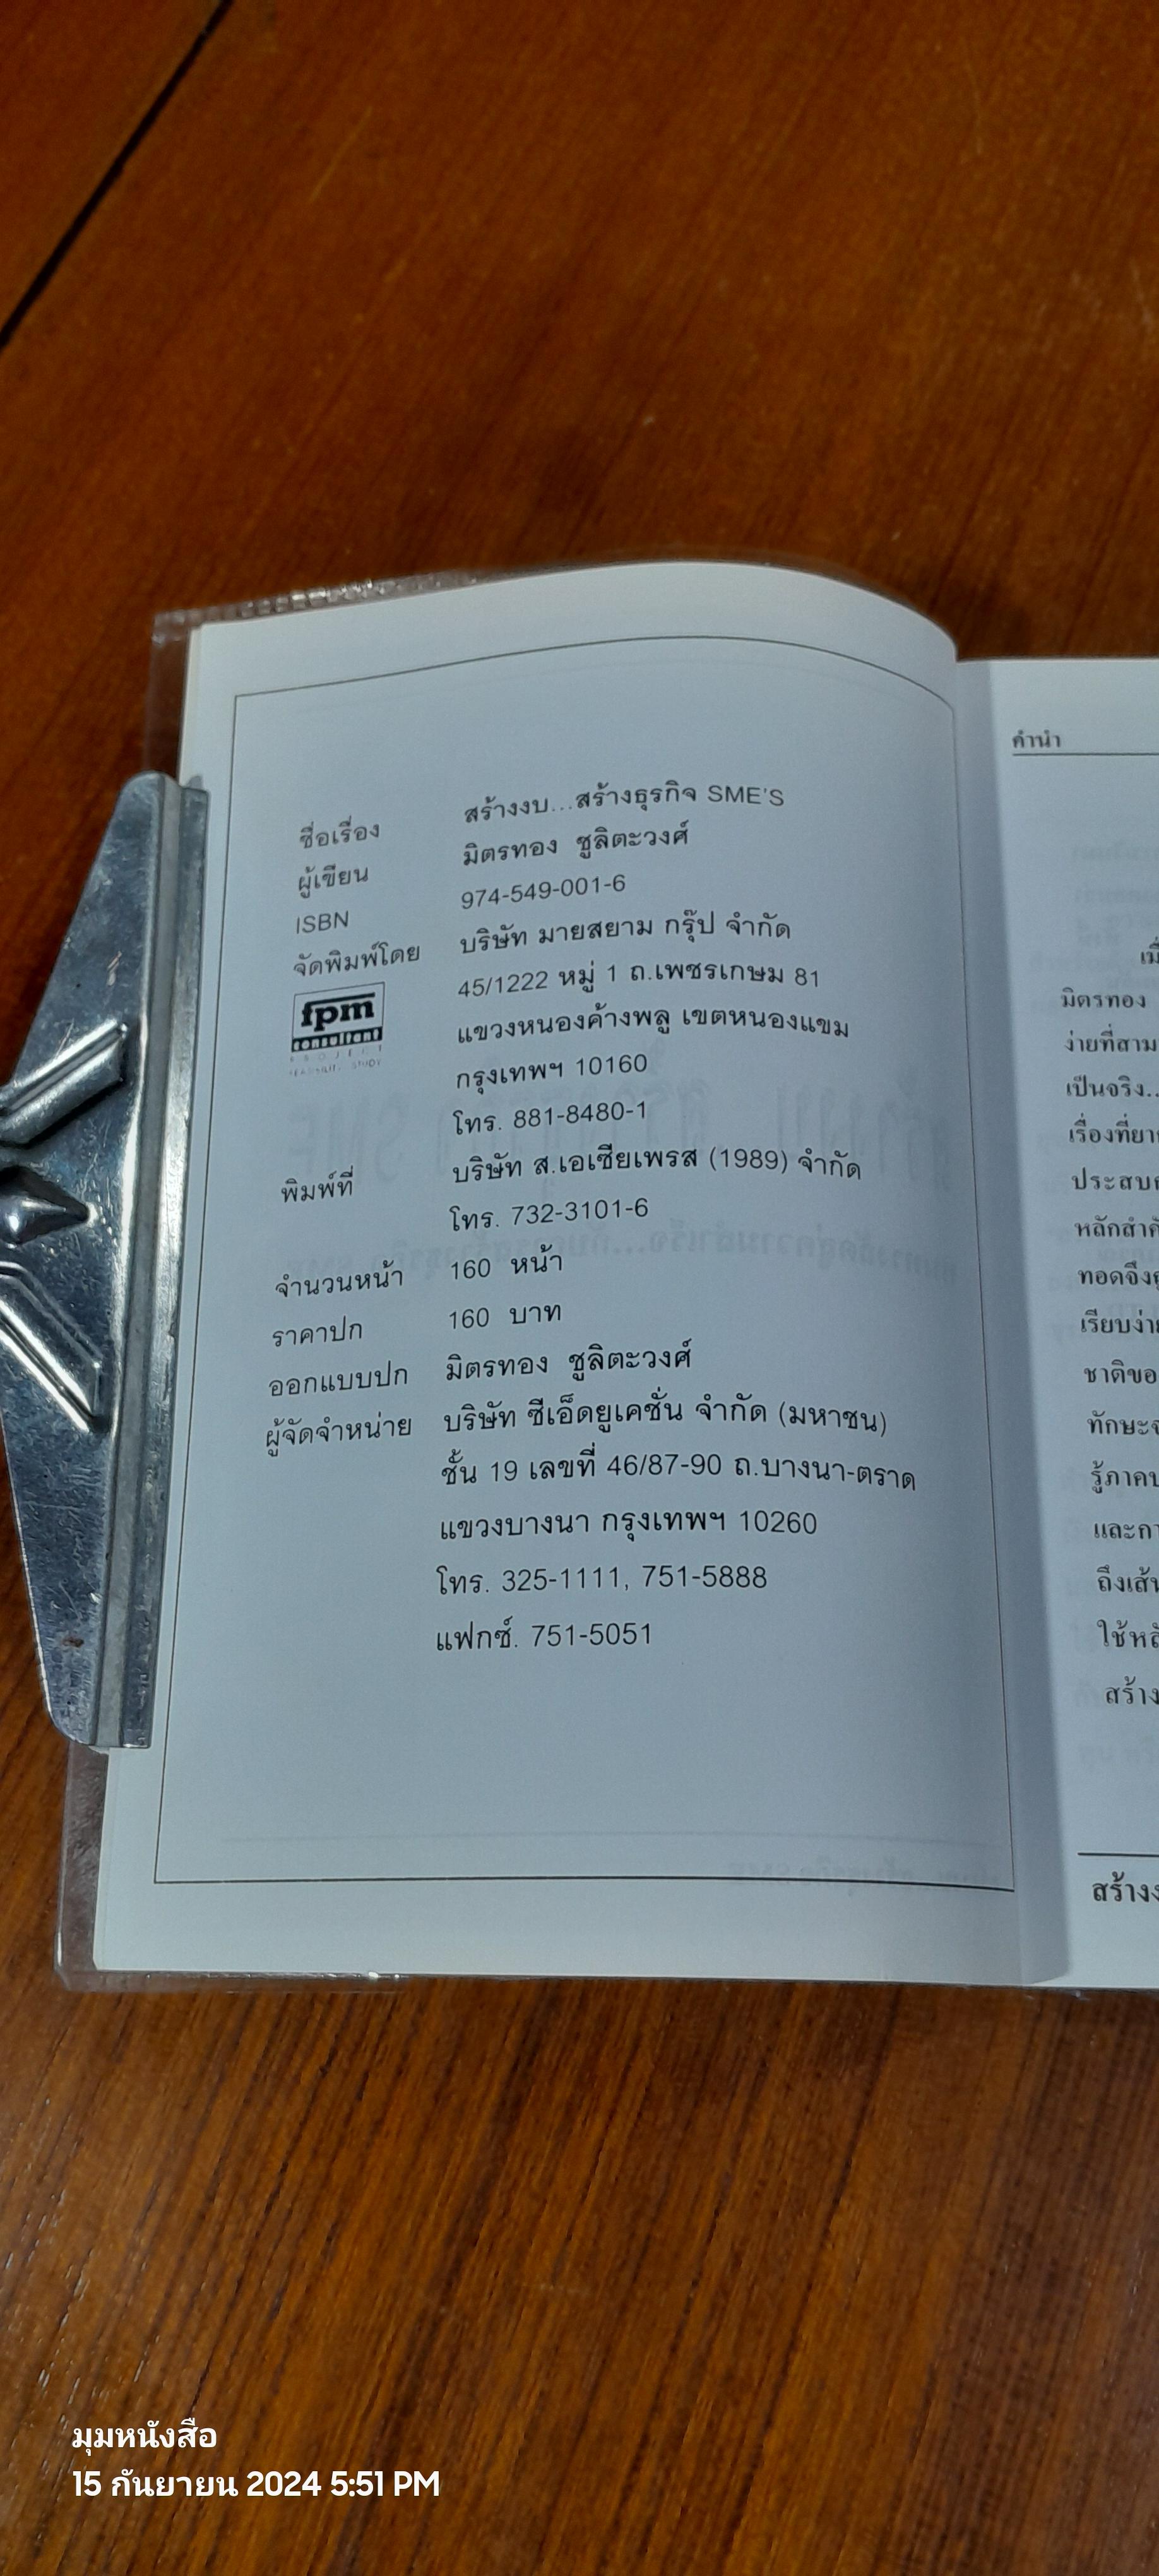 ชื่อเรื่อง สร้างงบ...สร้างธุรกิจ SME'S
ผู้เขียน มิตรทอง ชูลิตะวงศ์
ISBN 974-549-001-6
จัดพิมพ์โดย บริษัท มายสยาม กรุ๊ป จำกัด
fpm
consultant
45/1222 หมู่ 1 ถ.เพชรเกษม 81
แขวงหนองค้างพลู เขตหนองแขม
กรุงเทพฯ 10160
โทร. 881-8480-1
พิมพ์ที่ บริษัท ส.เอเซียเพรส (1989) จำกัด
โทร. 732-3101-6
จำนวนหน้า 160 หน้า
ราคาปก 160 บาท
ออกแบบปก มิตรทอง ชูลิตะวงศ์
ผู้จัดจำหน่าย บริษัท ซีเอ็ดยูเคชั่น จำกัด (มหาชน)
ชั้น 19 เลขที่ 46/87-90 ถ.บางนา-ตราด
แขวงบางนา กรุงเทพฯ 10260
โทร. 325-1111, 751-5888
แฟกซ์. 751-5051
คำนำ
มิตรทอง
ง่ายที่สาม
เป็นจริง..
เรื่องที่ยา
ประสบ
หลักสำ
ทอดจึง
เรียบง่า
ชาติขอ
ทักษะ
รู้ภาค
และกา
ถึงเส้น
ใช้หล
สร้าง
สร้าง
มุมหนังสือ
15 กันยายน 2024 5:51 PM